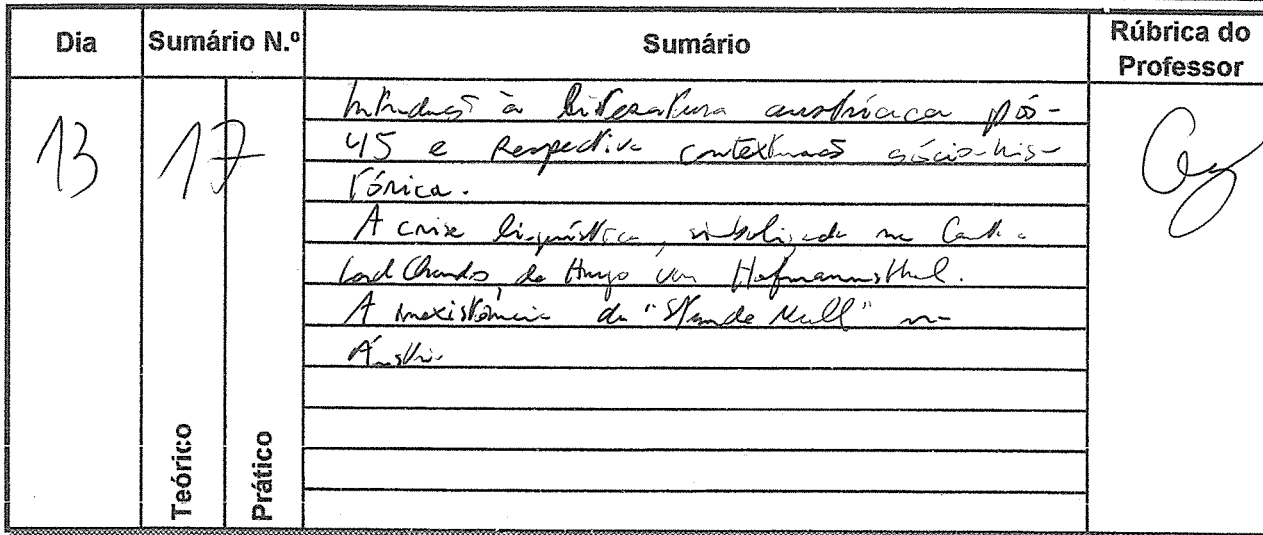 Dia Sumário N.º Sumário Rúbrica do
Professor
13 17
Introdução à literatura austríaca pós-
45 e respectiva contextuação sócio-his-
tórica.
A crise linguística, simbolizada na Carta
Lord Chandos, de Hugo von Hofmannsthal.
A inexistência da "Stunde Null" na
Áustria
Teórico
Prático